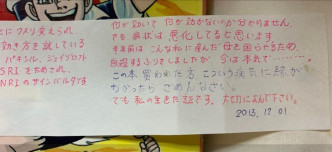 とに クスリ変えられ
効き方を試している
パキシル、ジェイゾロフト
SRI をためされ
NRI のサインバルタです
何が効いて 何が効かないか 分かりません。
でも 症状は 悪化してると思います
半年前は こんなに産んだ母を困らすため、
自殺するフリをしましたが 今は本気で‥‥‥‥
この本 買われた方、こういう病気に縁が
なかったら ごめんなさい。
でも 私の生きた証です。大切によんで下さい。
2013, 12 01